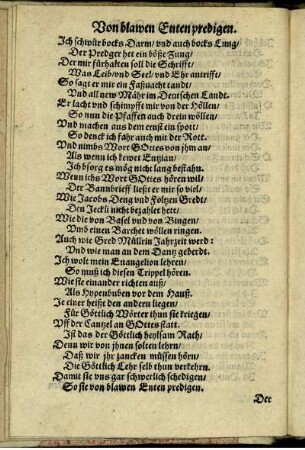 Von blawen Enten predigen.
Ich schwür bocks Darm/ vnd auch bocks Lung/
Der Predger het ein böse Zung/
Der mir fürhalten soll die Schrifft/
Was Leib vnd Seel/ vnd Ehr antrifft/
So sagt er mir ein Faßnacht tandt/
Vnd all new Mähr im Deutschen Landt.
Er lacht vnd schimpfft mir von der Höllen/
So nun die Pfaffen auch drein wöllen/
Vnd machen aus dem ernst ein spott/
So denck ich fahr auch mit der Rott.
Vnd nimbs Wort GOttes von jhm an/
Als wenn ich kewet Enzian/
Ich bsorg es mög nicht lang bestahn.
Wenn ichs Wort GOttes hören wil/
Der Bannbrieff ließt er mir so viel/
Wie Jacobs Deng vnd Foltzen Gredt/
Den Jeckli nicht bezahlet hett/
Wie die von Basel vnd von Bingen/
Vmb einen Barchet wöllen ringen.
Auch wie Gred Müllrin Jahrzeit werd:
Vnd wie man an dem Dantz geberdt.
Ich wolt mein Euangelion lehren/
So muß ich diesen Trippel hören.
Wie sie einander richten auß/
Als Hypenbuben vor dem Hauß.
Je einer heißt den andern liegen/
Für Göttlich Wörter thun sie kriegen/
Vff der Cantzel an GOttes statt.
Ist das der Göttlich heylsam Rath/
Denn wir von jhnen solten lehrn/
Daß wir jhr zancken müssen hörn/
Die Göttlich Lehr selb thun verkehrn.
Damit sie vns gar schwerlich schedigen/
So sie von blawen Enten predigen.
Der